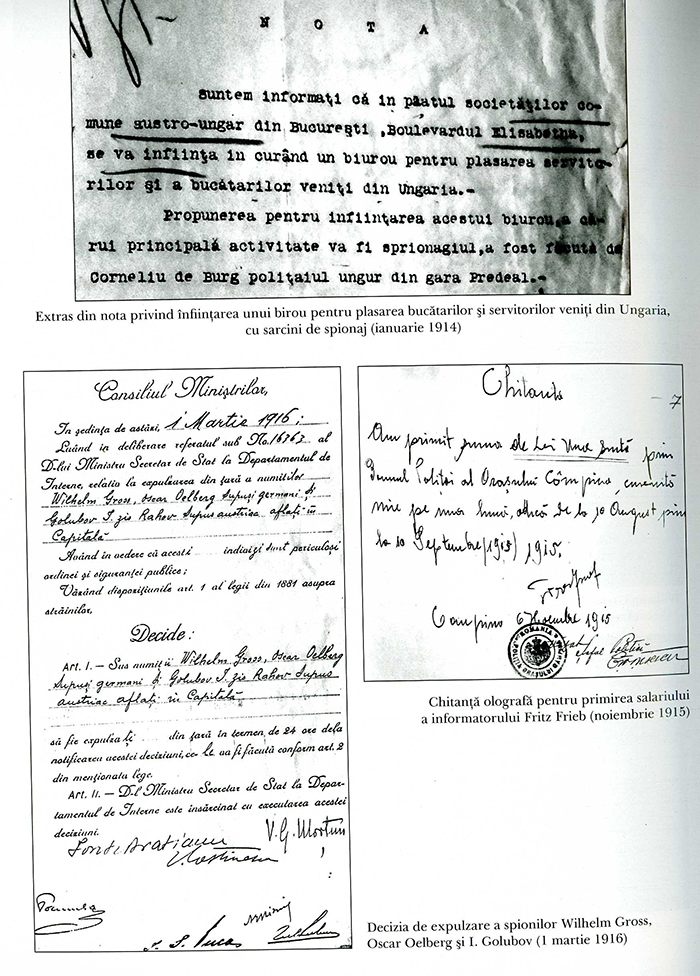 N O T A
suntem informați că in palatul societăților co-
mune austro-ungar din București ,Boulevardul Elisabetha,
se va inființa in curând un biurou pentru plasarea servito-
rilor și a bucătarilor veniți din Ungaria.-
Propunerea pentru inființarea acestui biurou,a că-
rui principală activitate va fi sprionagiul,a fost făcută de
Corneliu de Burg polițaiul ungur din gara Predeal.-
Extras din nota privind înființarea unui birou pentru plasarea bucătarilor și servitorilor veniți din Ungaria,
cu sarcini de spionaj (ianuarie 1914)
Consiliul Miniștrilor,
În ședința de astăzi, 1 Martie 1916;
Luând în deliberare referatul sub No. 16763 al
D-lui Ministru Secretar de Stat la Departamentul de
Interne, relativ la expulzarea din țară a numitilor
Wilhelm Gross, Oscar Oelberg Supuși germani și
Golubov I. zis Rahov Supus austriac aflați în
Capitală
Având în vedere că acesti indivizi sunt periculoși
ordinei și siguranței publice;
Văzând dispozițiunile art. 1 al legii din 1881 asupra
străinilor,
Decide:
Art. I.- Sus numiții Wilhelm Gross, Oscar Oelberg
Supuși germani și Golubov I. zis Rahov Supus
austriac aflați în Capitală
să fie expulzați din țară în termen de 24 ore dela
notificarea acestei deciziuni, ce le va fi făcută conform art. 2
din menționata lege.
Art. II.- D-l Ministru Secretar de Stat la Depar-
tamentul de Interne este însărcinat cu executarea acestei
deciziuni.
V. G. Morțun
Chitanța
7
Am primit suma de Lei Una Sută prin
Domnul Poliței al Orașului Câmpina, cuvenită
mie pe una lună, adică de la 10 August până
la 10 Septembre (1915) 1915.
Campina 6 Noembre 1915
ROMANIA
Chitanță olografă pentru primirea salariului
a informatorului Fritz Frieb (noiembrie 1915)
Decizia de expulzare a spionilor Wilhelm Gross,
Oscar Oelberg și I. Golubov (1 martie 1916)